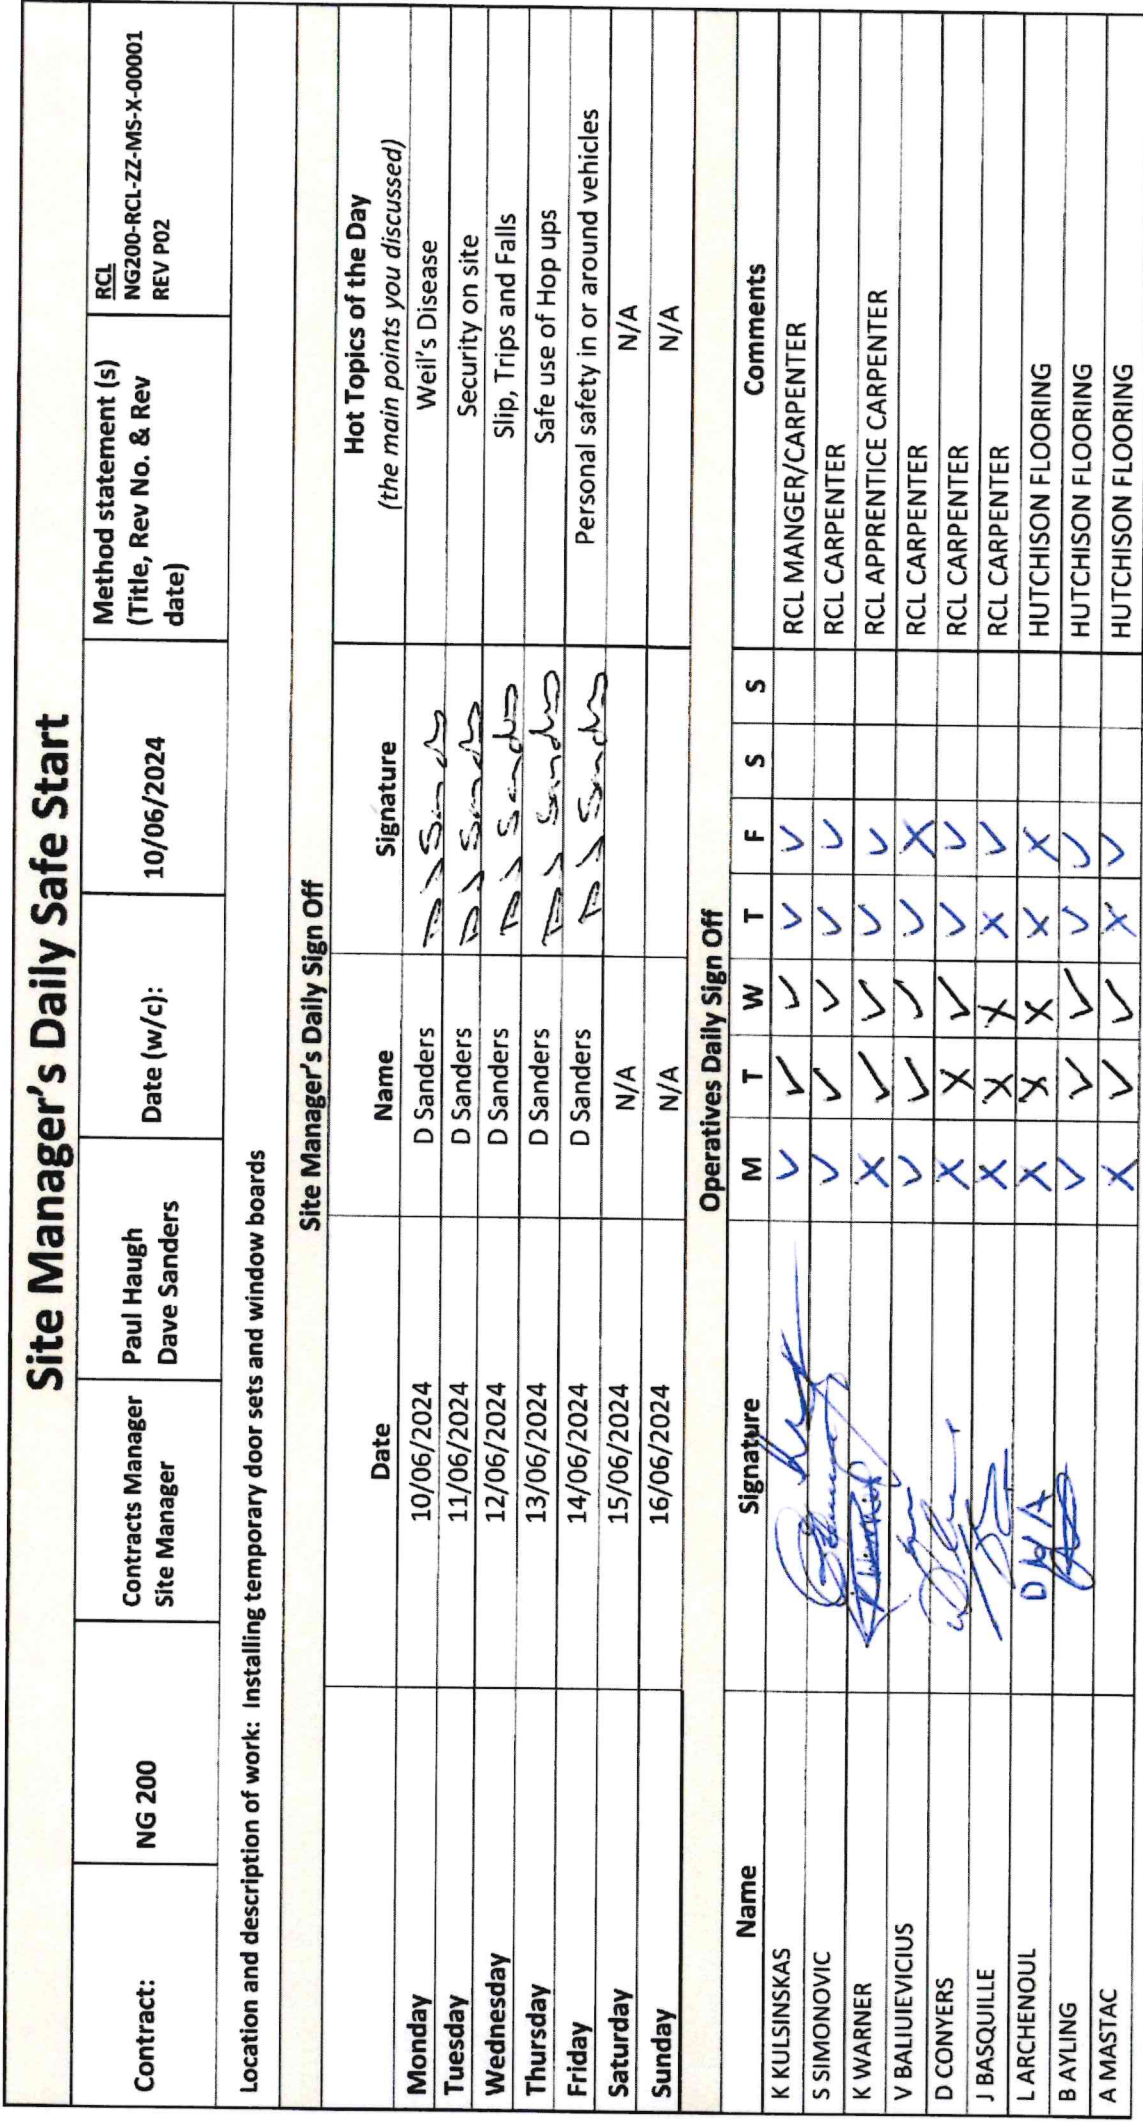 Site Manager's Daily Safe Start
Contract: NG 200 Contracts Manager Paul Haugh Date (w/c): 10/06/2024 Method statement (s) RCL
Site Manager Dave Sanders (Title, Rev No. & Rev NG200-RCL-ZZ-MS-X-00001
date) REV P02
Location and description of work: Installing temporary door sets and window boards
Site Manager's Daily Sign Off
Date Name Signature Hot Topics of the Day
(the main points you discussed)
Monday 10/06/2024 D Sanders Weil's Disease
Tuesday 11/06/2024 D Sanders Security on site
Wednesday 12/06/2024 D Sanders Slip, Trips and Falls
Thursday 13/06/2024 D Sanders Safe use of Hop ups
Friday 14/06/2024 D Sanders Personal safety in or around vehicles
Saturday 15/06/2024 N/A N/A
Sunday 16/06/2024 N/A N/A
Operatives Daily Sign Off
Name Signature M T W T F S S Comments
K KULSINSKAS ✓ ✓ ✓ ✓ ✓ RCL MANGER/CARPENTER
S SIMONOVIC ✓ ✓ ✓ ✓ ✓ RCL CARPENTER
K WARNER X ✓ ✓ ✓ ✓ RCL APPRENTICE CARPENTER
V BALIUIEVICIUS ✓ ✓ ✓ ✓ X RCL CARPENTER
D CONYERS X X ✓ ✓ ✓ RCL CARPENTER
J BASQUILLE X X X X ✓ RCL CARPENTER
L ARCHENOUL X X X X X HUTCHISON FLOORING
B AYLING ✓ ✓ ✓ ✓ ✓ HUTCHISON FLOORING
A MASTAC X ✓ ✓ X ✓ HUTCHISON FLOORING